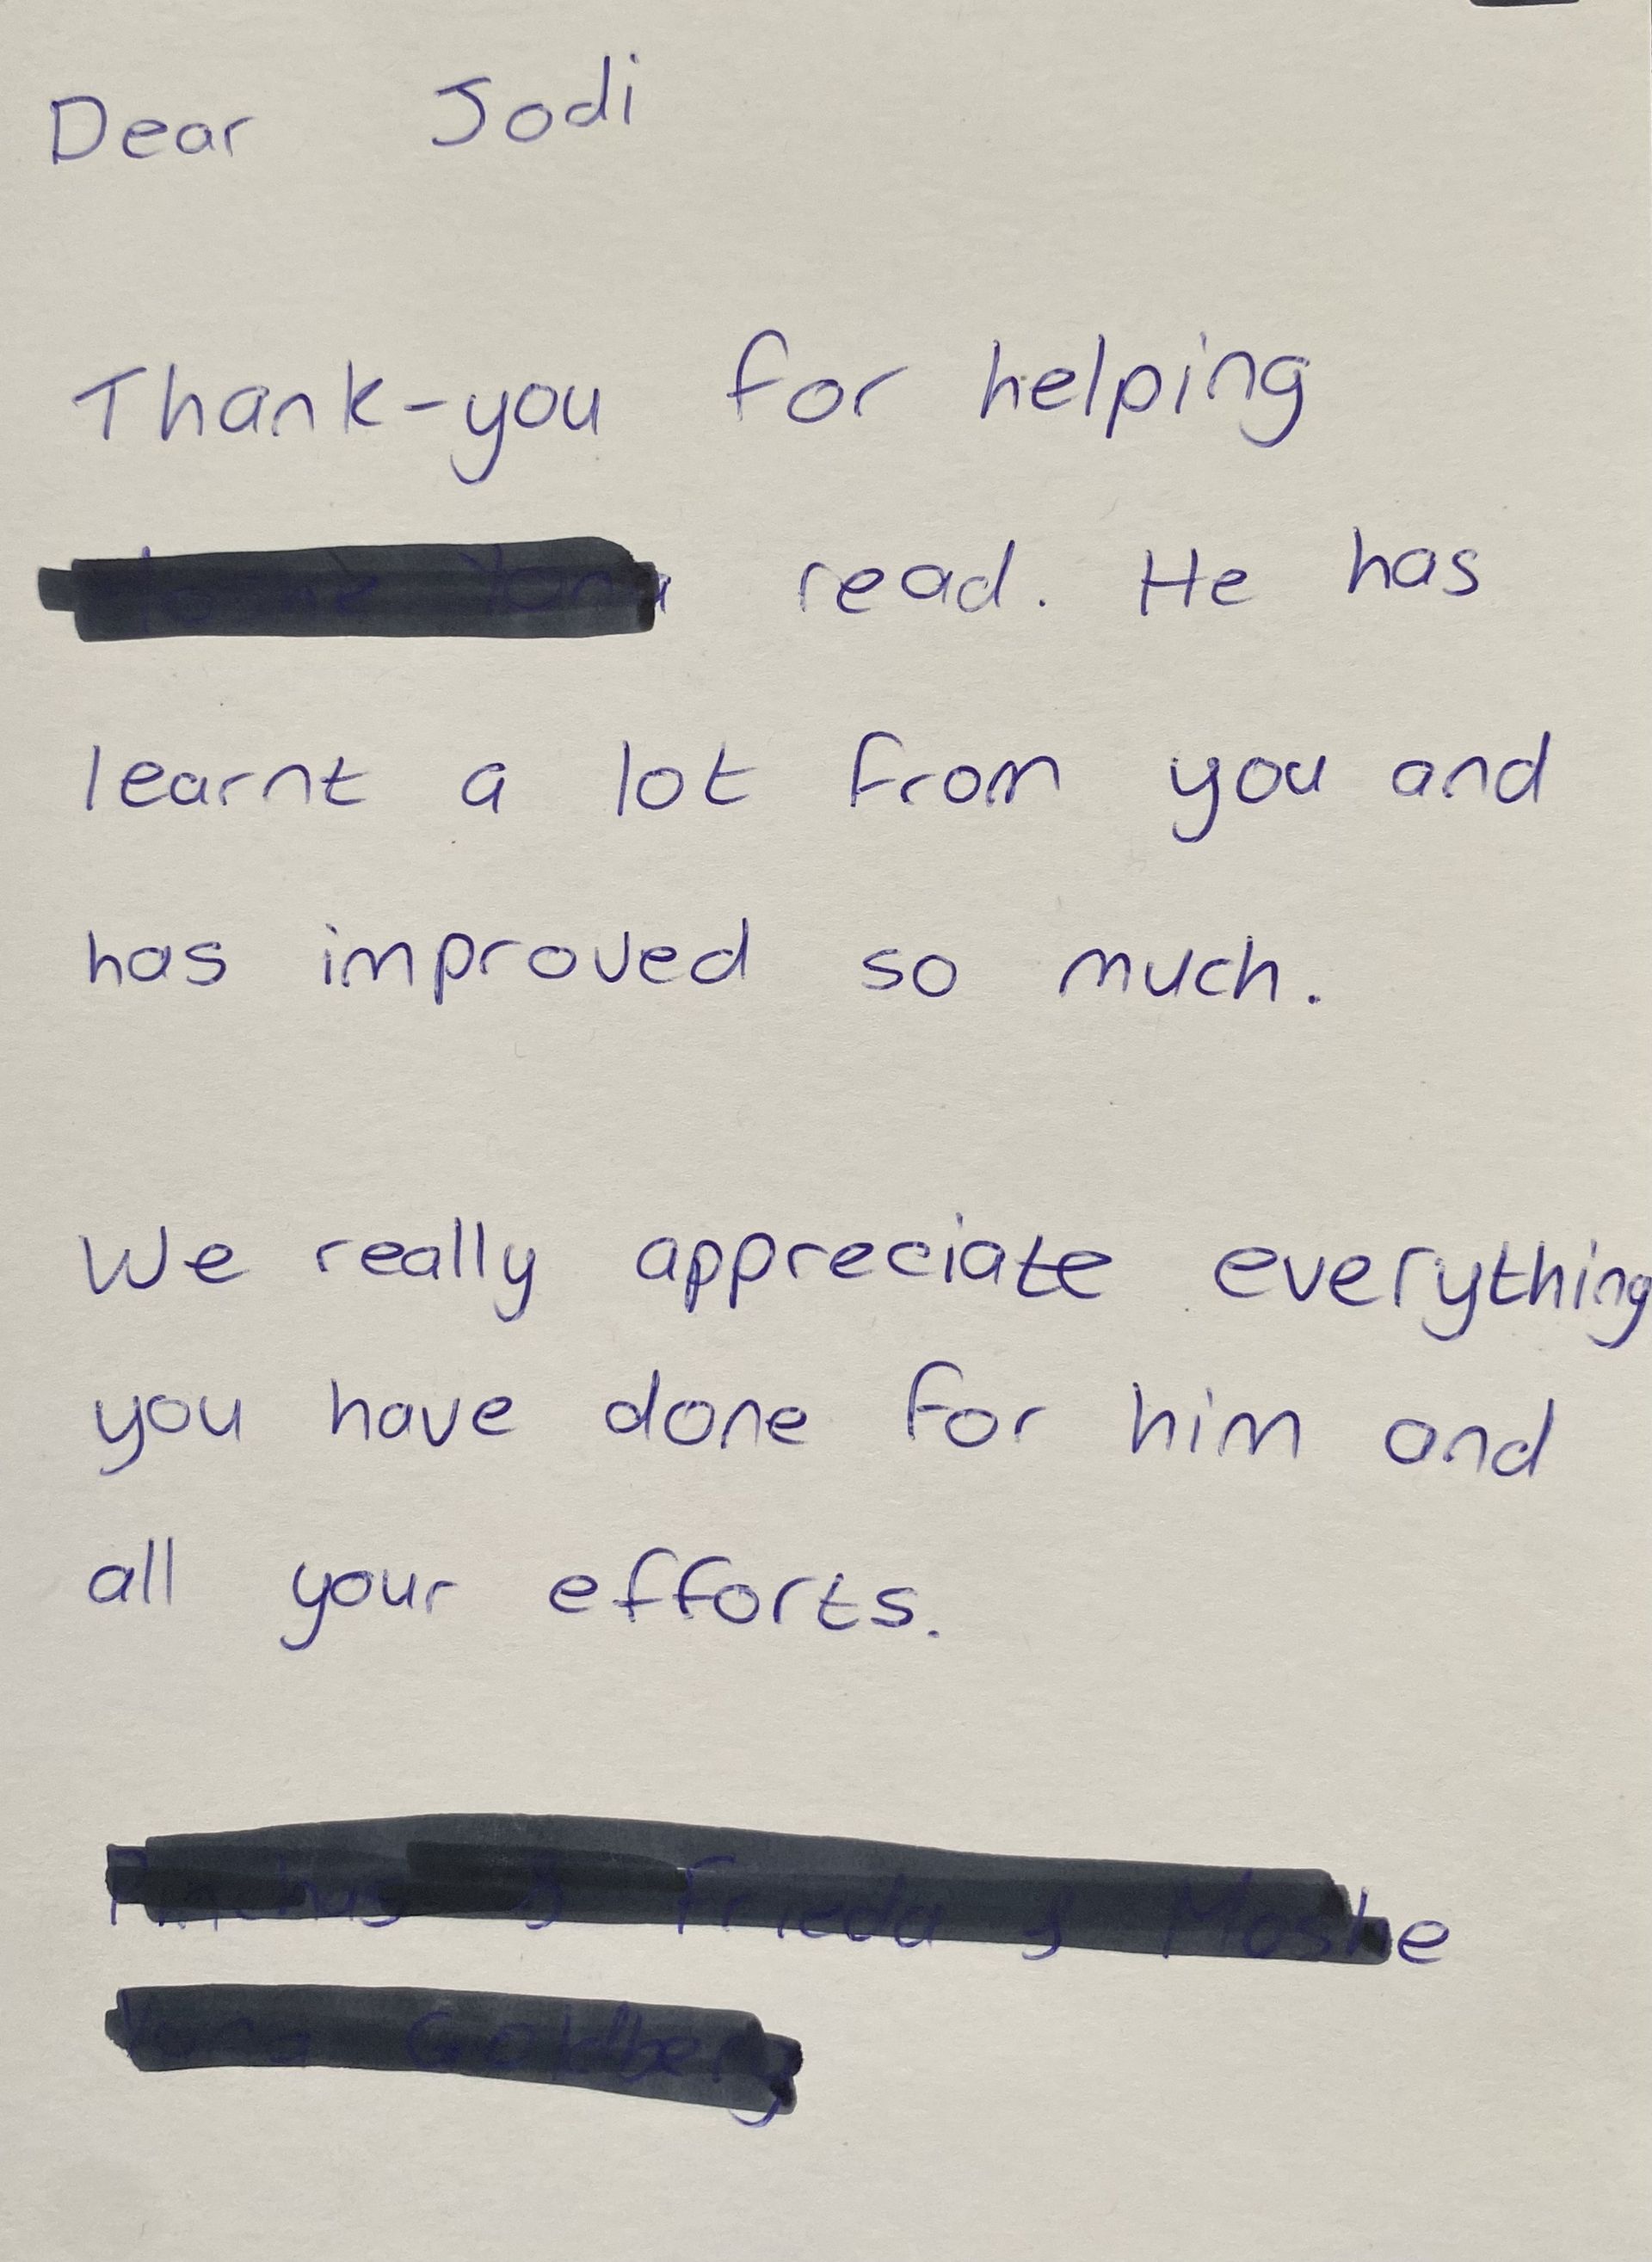 Dear Jodi
Thank-you for helping
read. He has
learnt a lot from you and
has improved so much.
We really appreciate everything
you have done for him and
all your efforts.